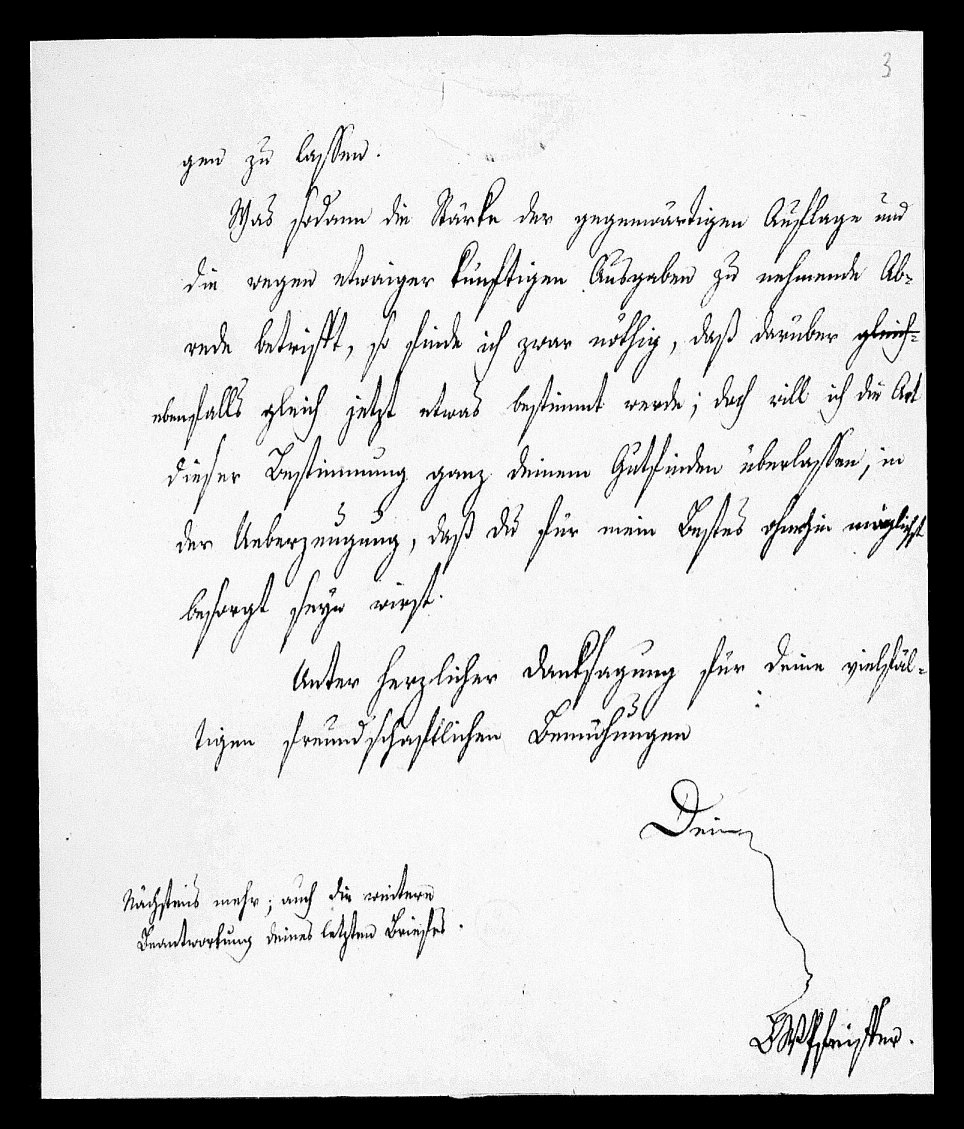 3
gen zu lassen.
Was sodann die Stärke der gegenwärtigen Auflage und
die wegen etwaiger künftigen Ausgaben zu nehmende Ab-
rede betrifft, so finde ich zwar nöthig, daß darüber gleich-
ebenfalls gleich jetzt etwas bestimmt werde; doch will ich die Art
dieser Bestimmung ganz deinem Gutfinden überlassen, in
der Ueberzeugung, daß du für mein Bestes ohnehin möglichst
besorgt seyn wirst.
Unter herzlicher Danksagung für deine vielfäl-
tigen freundschaftlichen Bemühungen
Dein
Nächstens mehr; auch die weitere
Beantwortung deines letzten Briefes.
Pfeiffer.